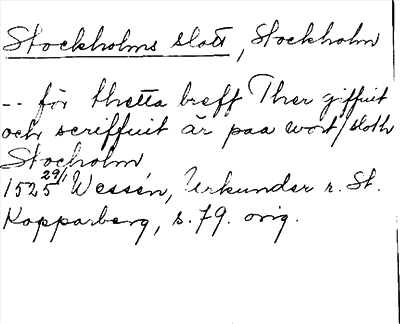 Stockholms slott, Stockholm
-- för thetta breff Ther giffuit
och scriffuit är paa wort/sloth
Stocholm
1525 29/1 Wessén, Urkunder r. St.
Kopparberg, s. 79. orig.